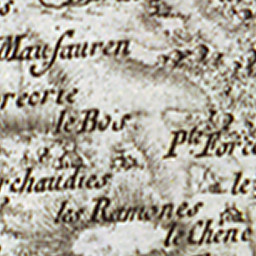 Mausauren
recrie
le Bois
Pte. Force
rchaudies
le
les Ramones
le Chêne